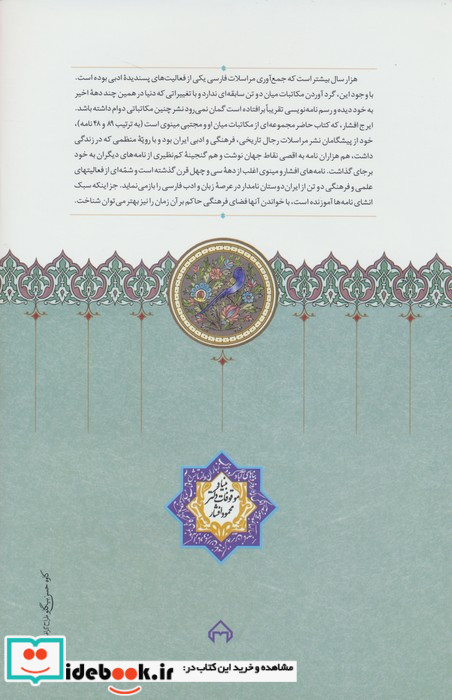 هزار سال بیشتر است که جمع‌آوری مراسلات فارسی یکی از فعالیت‌های پسندیدهٔ ادبی بوده است.
با وجود این، گرد آوردن مکاتبات میان دو تن سابقه‌ای ندارد و با تغییراتی که دنیا در همین چند دههٔ اخیر
به خود دیده و رسم نامه‌نویسی تقریباً برافتاده است گمان نمی‌رود نشر چنین مکاتباتی دوام داشته باشد.
ایرج افشار، که کتاب حاضر مجموعه‌ای از مکاتبات میان او و مجتبی مینوی است (به ترتیب ۸۱ و ۴۸ نامه)،
خود از پیشگامان نشر مراسلات رجال تاریخی، فرهنگی و ادبی ایران بود و با رویّهٔ منظمی که در زندگی
داشت، هم هزاران نامه به اقصی نقاط جهان نوشت و هم گنجینهٔ کم‌نظیری از نامه‌های دیگران به خود
برجای گذاشت. نامه‌های افشار و مینوی اغلب از دههٔ سی و چهل قرن گذشته است و شمّه‌ای از فعالیتهای
علمی و فرهنگی دو تن از ایران‌دوستان نامدار در عرصهٔ زبان و ادب فارسی را بازمی‌نماید. جز اینکه سبک
انشای نامه‌ها آموزنده است، با خواندن آنها فضای فرهنگی حاکم بر آن زمان را نیز بهتر می‌توان شناخت.
بنیاد
موقوفات دکتر
محمود افشار
idebook.ir
مشاهده و خرید این کتاب در: